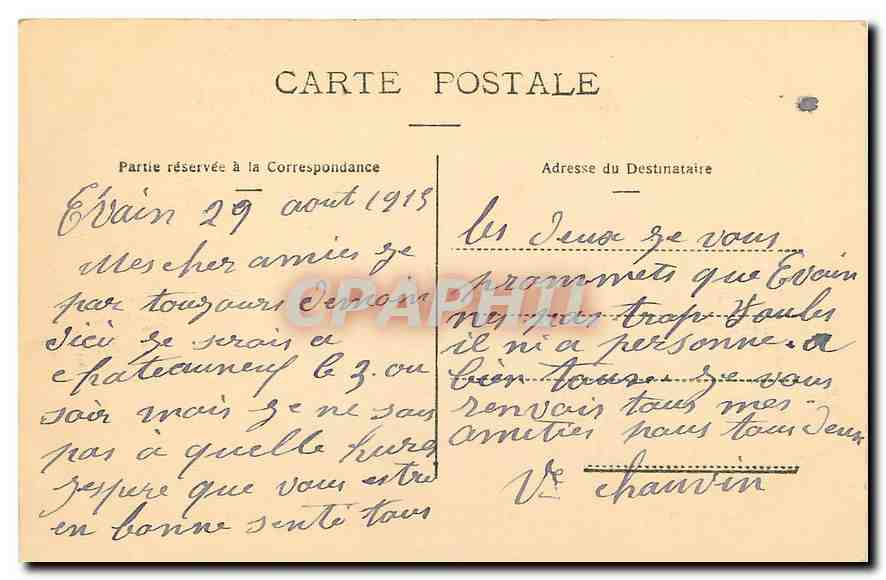 CARTE POSTALE
Partie réservée à la Correspondance
Evain 29 aout 1915
Mes cher amies ge
par tougours demain
dici ge serais a
chateauneuf le 3 au
soir mais ge ne sais
pas à quelle hures
gespere que vous estre
en bonne senté tous
Adresse du Destinataire
les deux ge vous
prommets que Evain
nes pas trap
il ni a personne. a
bien taur. ge vous
renvais tous mes
ameties paus tous deux
Ve chauvin
CPAPHIL